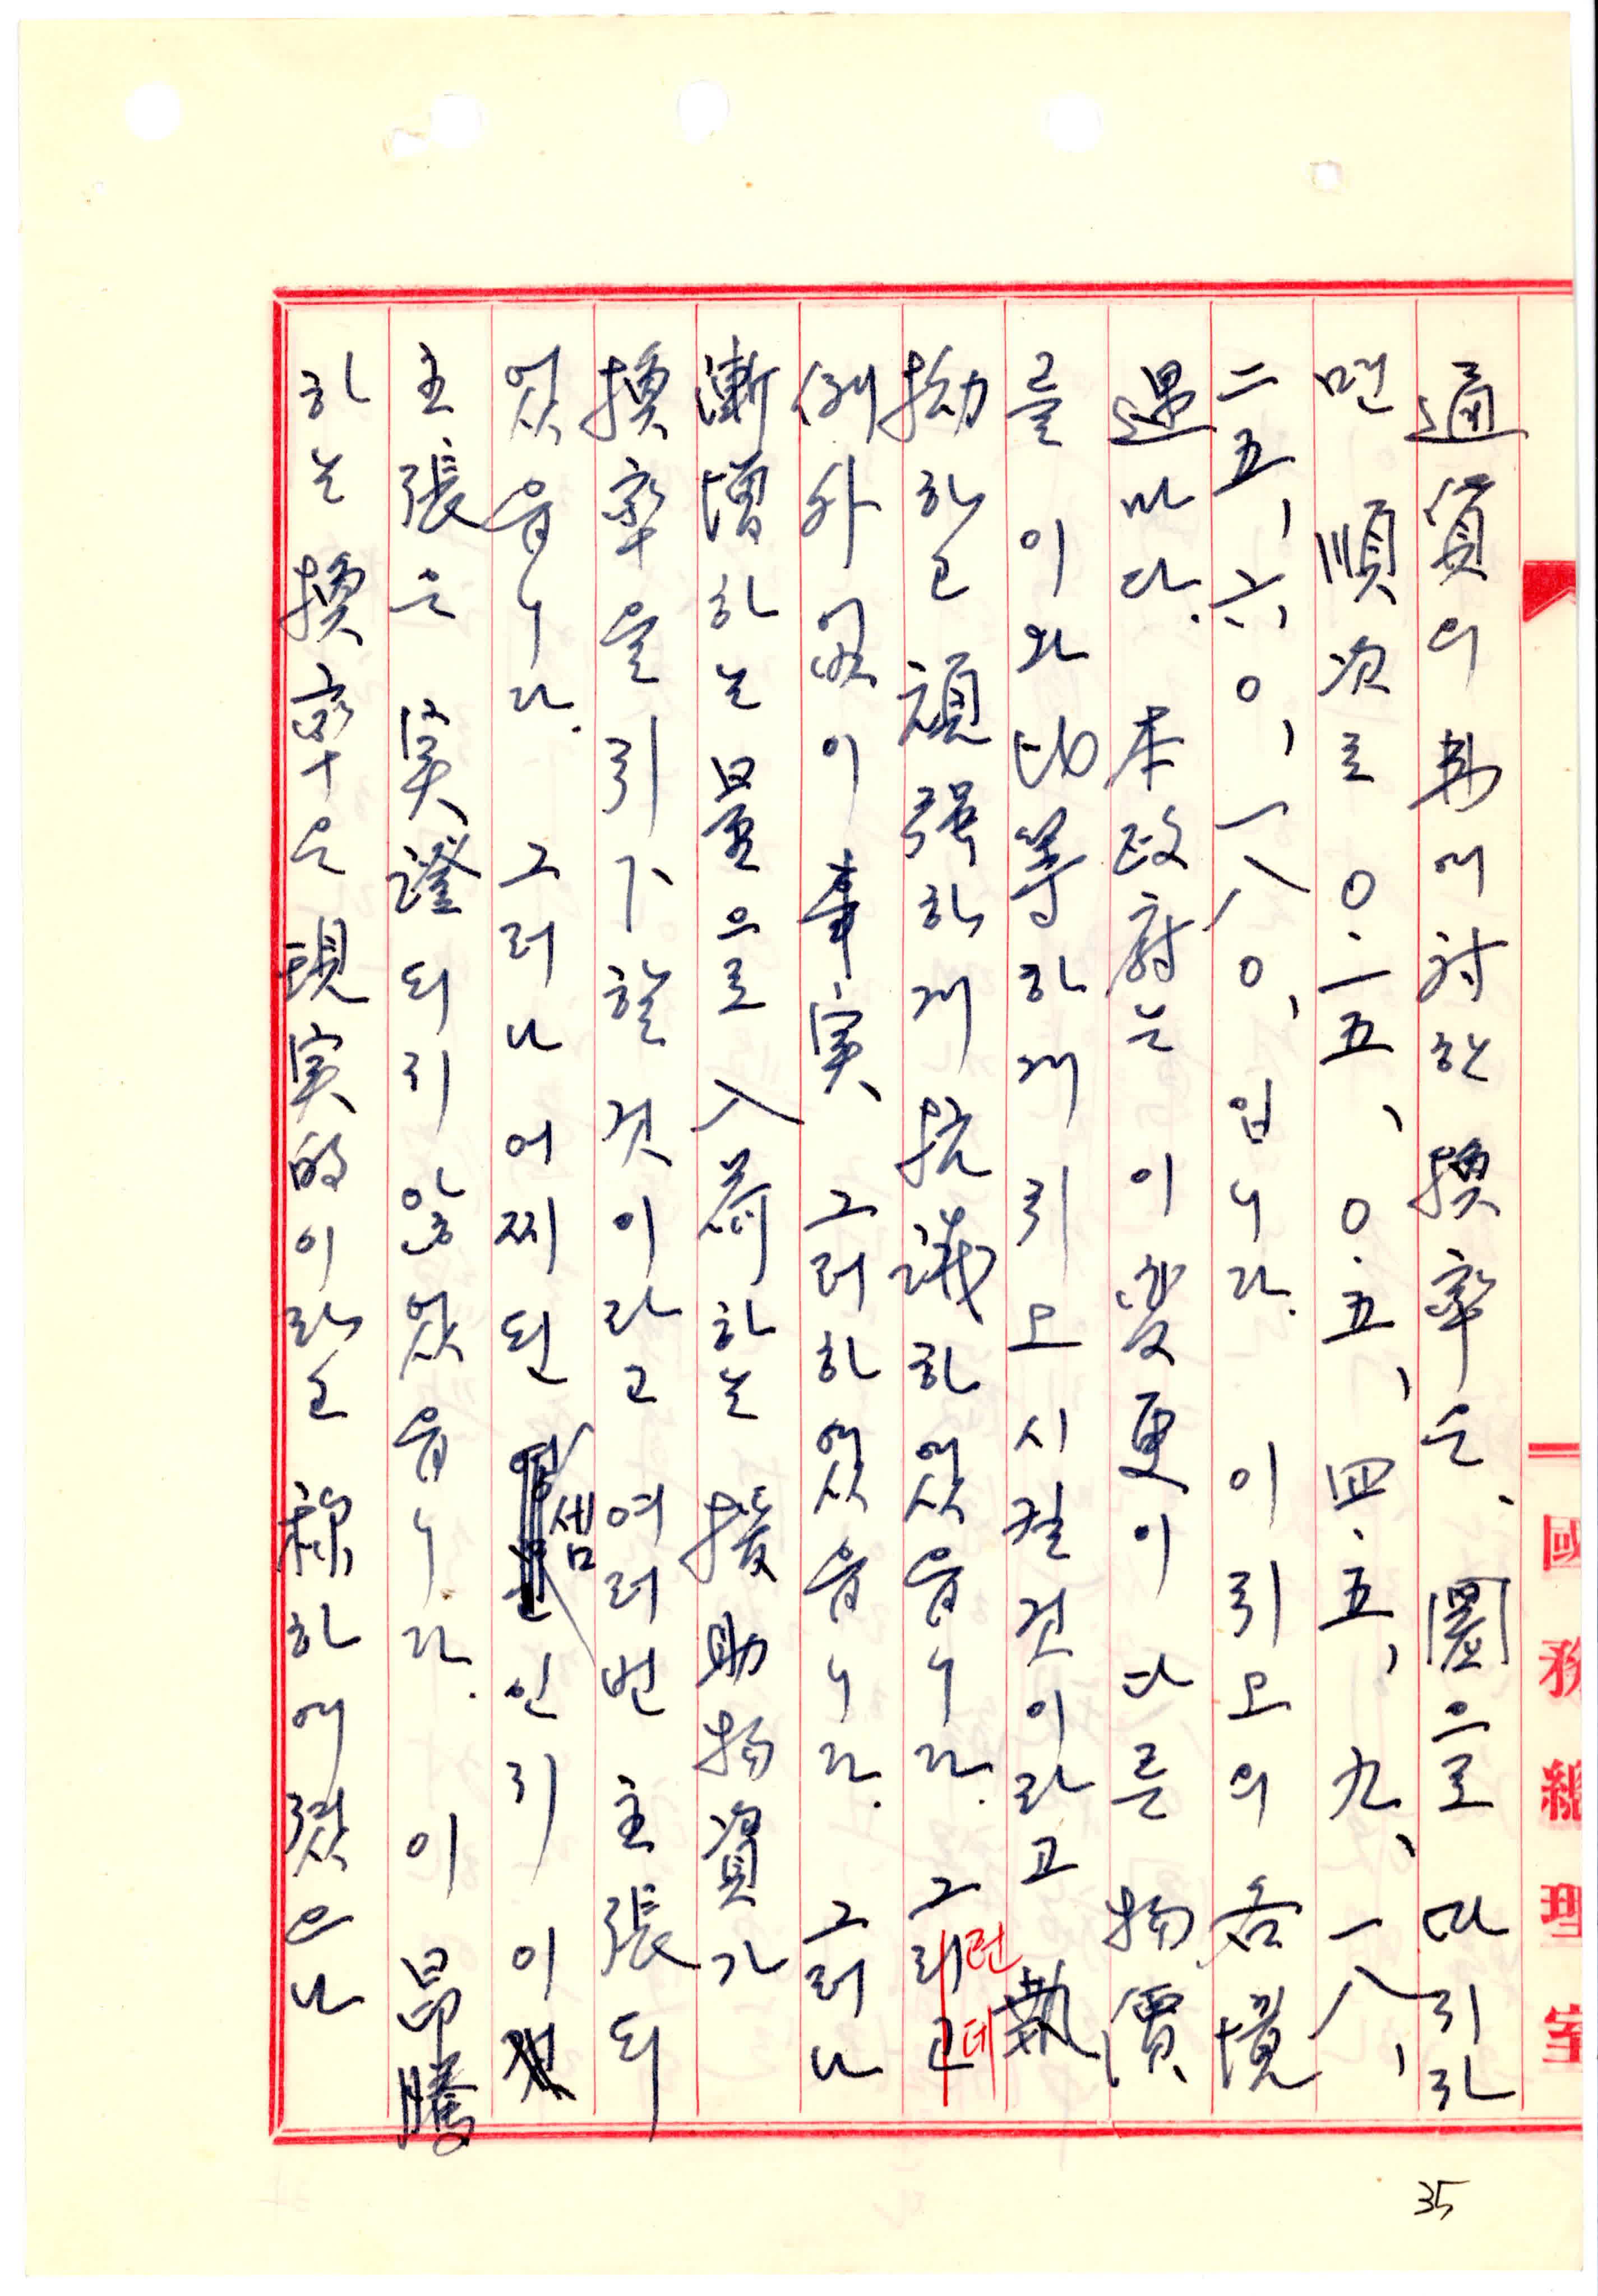 國務總理室
通貨의 弗에 対한 換率은、圜으로 따지자
면 順次로 〇·一五、〇·五、四·五、九、一八、
二五、六〇、一八〇、입니다. 이 引上의 各境
遇마다. 本政府는 이 変更이 다른 物價
를 이와 比等하게 引上시킬것이라고 執
拗하고 頑强하게 抗議하였읍니다. 그런데
例外없이 事実 그러하였읍니다. 그러나
漸增하는 量으로 入荷하는 援助物資가
換率을 引下할것이라고 여러번 主張되
었읍니다. 그러나 어찌된 셈인지 이
主張은 実證되지 않었읍니다. 이 昻騰
하는 換率은 現実的이라고 稱하여졌으나
35